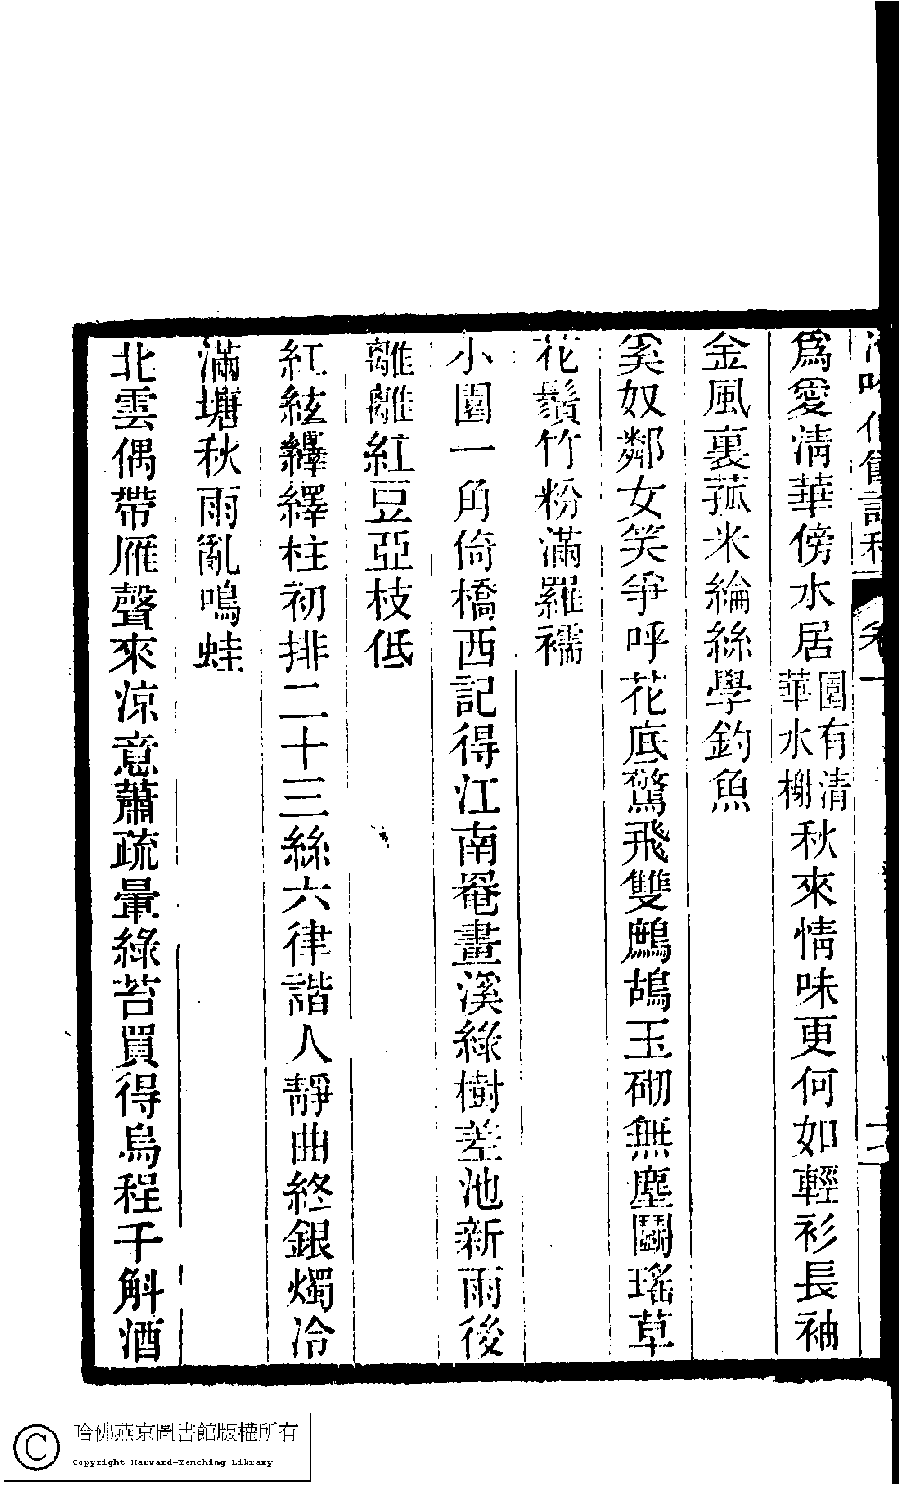 爲愛清華傍水居園有清華水榭秋來情味更何如輕衫長袖
金風裏菰米綸絲學釣魚
奚奴鄰女笑爭呼花底驚飛雙鷓鴣玉砌無塵鬭瑤草
花鬚竹粉滿羅襦
小園一角倚橋西記得江南罨畫溪綠樹差池新雨後
離離紅豆亞枝低
紅絃繹繹柱初排二十三絲六律諧人靜曲終銀燭冷
滿塘秋雨亂鳴蛙
北雲偶帶雁聲來涼意蕭疏暈綠苔買得烏程千斛酒
哈佛燕京圖書館版權所有
Copyright Harvard-Yenching Library